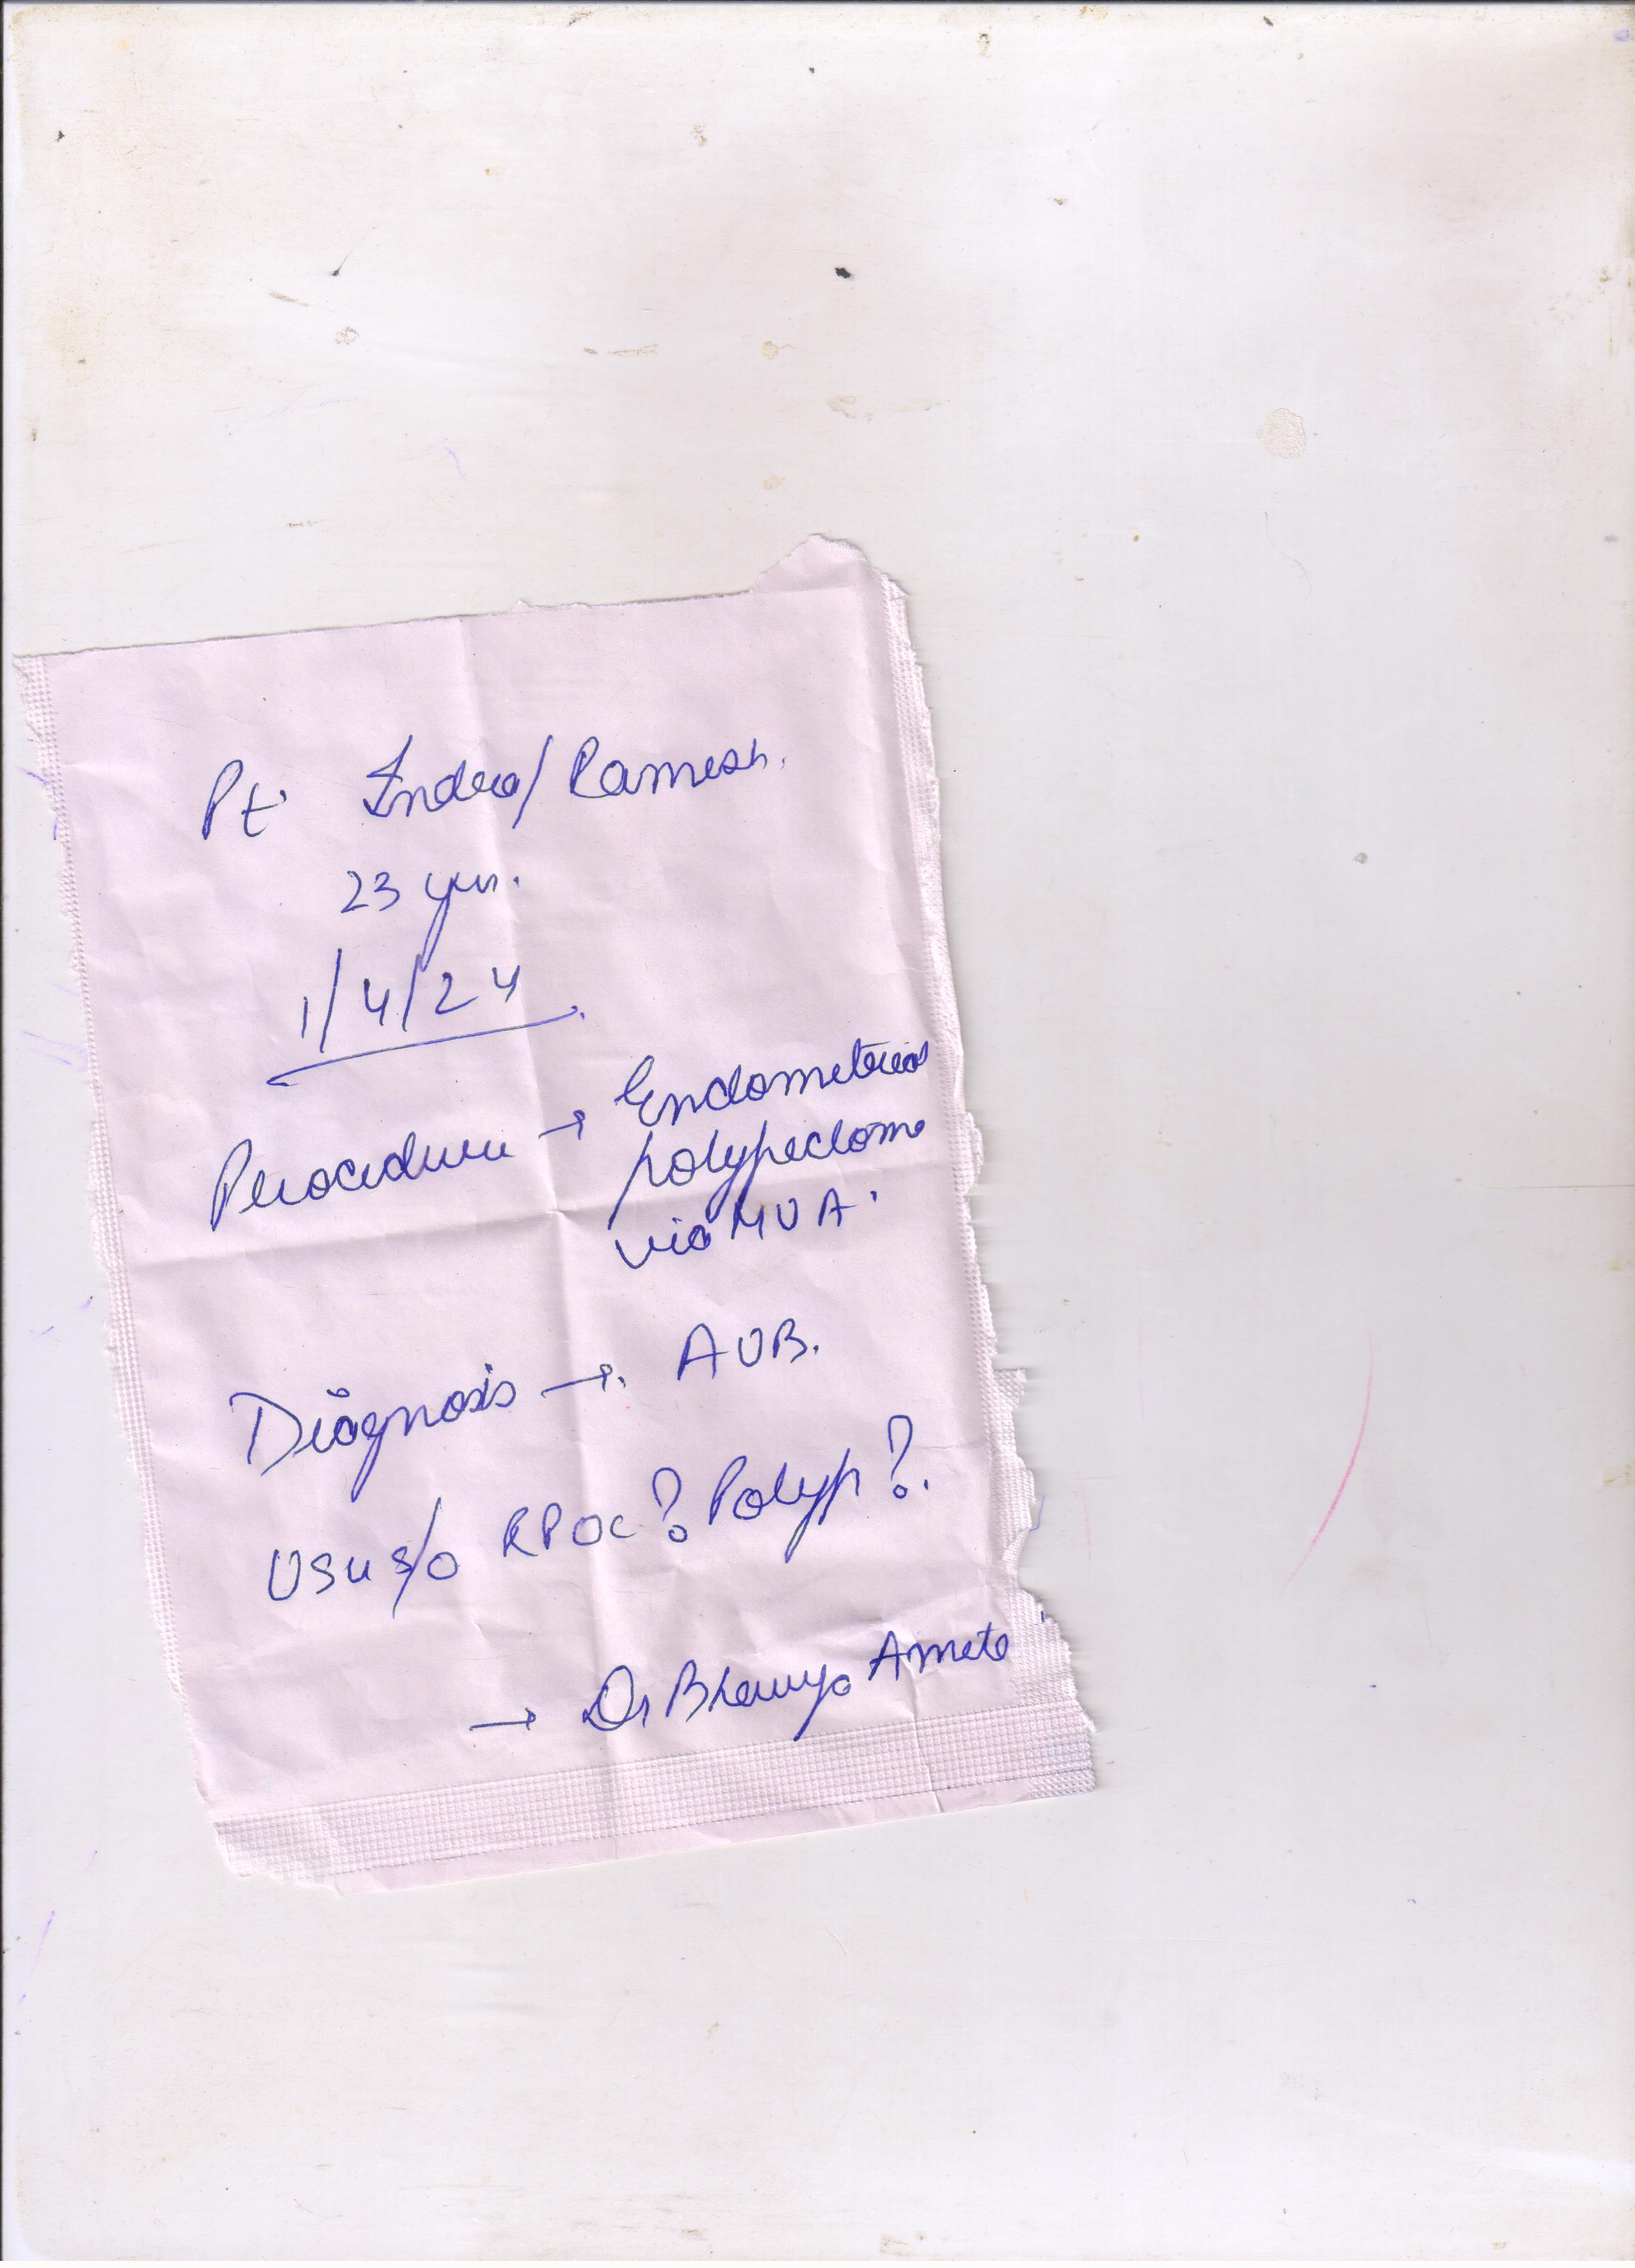 Pt. Indra/Ramesh.
23 yrs.
1/4/24
Procedure → Endometrial
polypectomy
via MVA.
Diagnosis →. AUB.
USG s/o RPOC? Polyp?.
→ Dr Bhavya Ameta